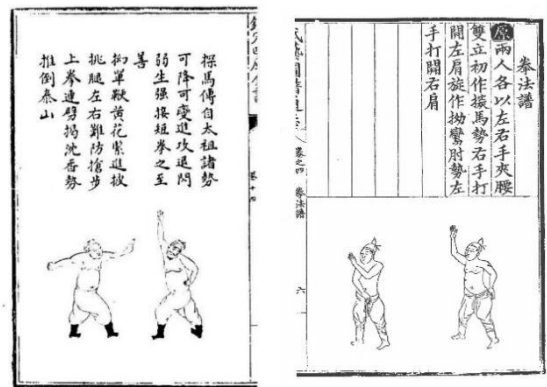 探馬傳自太祖諸勢
可降可變進攻退閃
弱生强接短拳之至
善
拗單鞭黃花緊進披
挑腿左右難防搶步
上拳連劈揭沈香勢
推倒泰山
卷十四
拳法譜
原兩人各以左右手夾腰
雙立初作探馬勢右手打
開左肩旋作拗鸞肘勢左
手打開右肩
卷之四 拳法譜 六